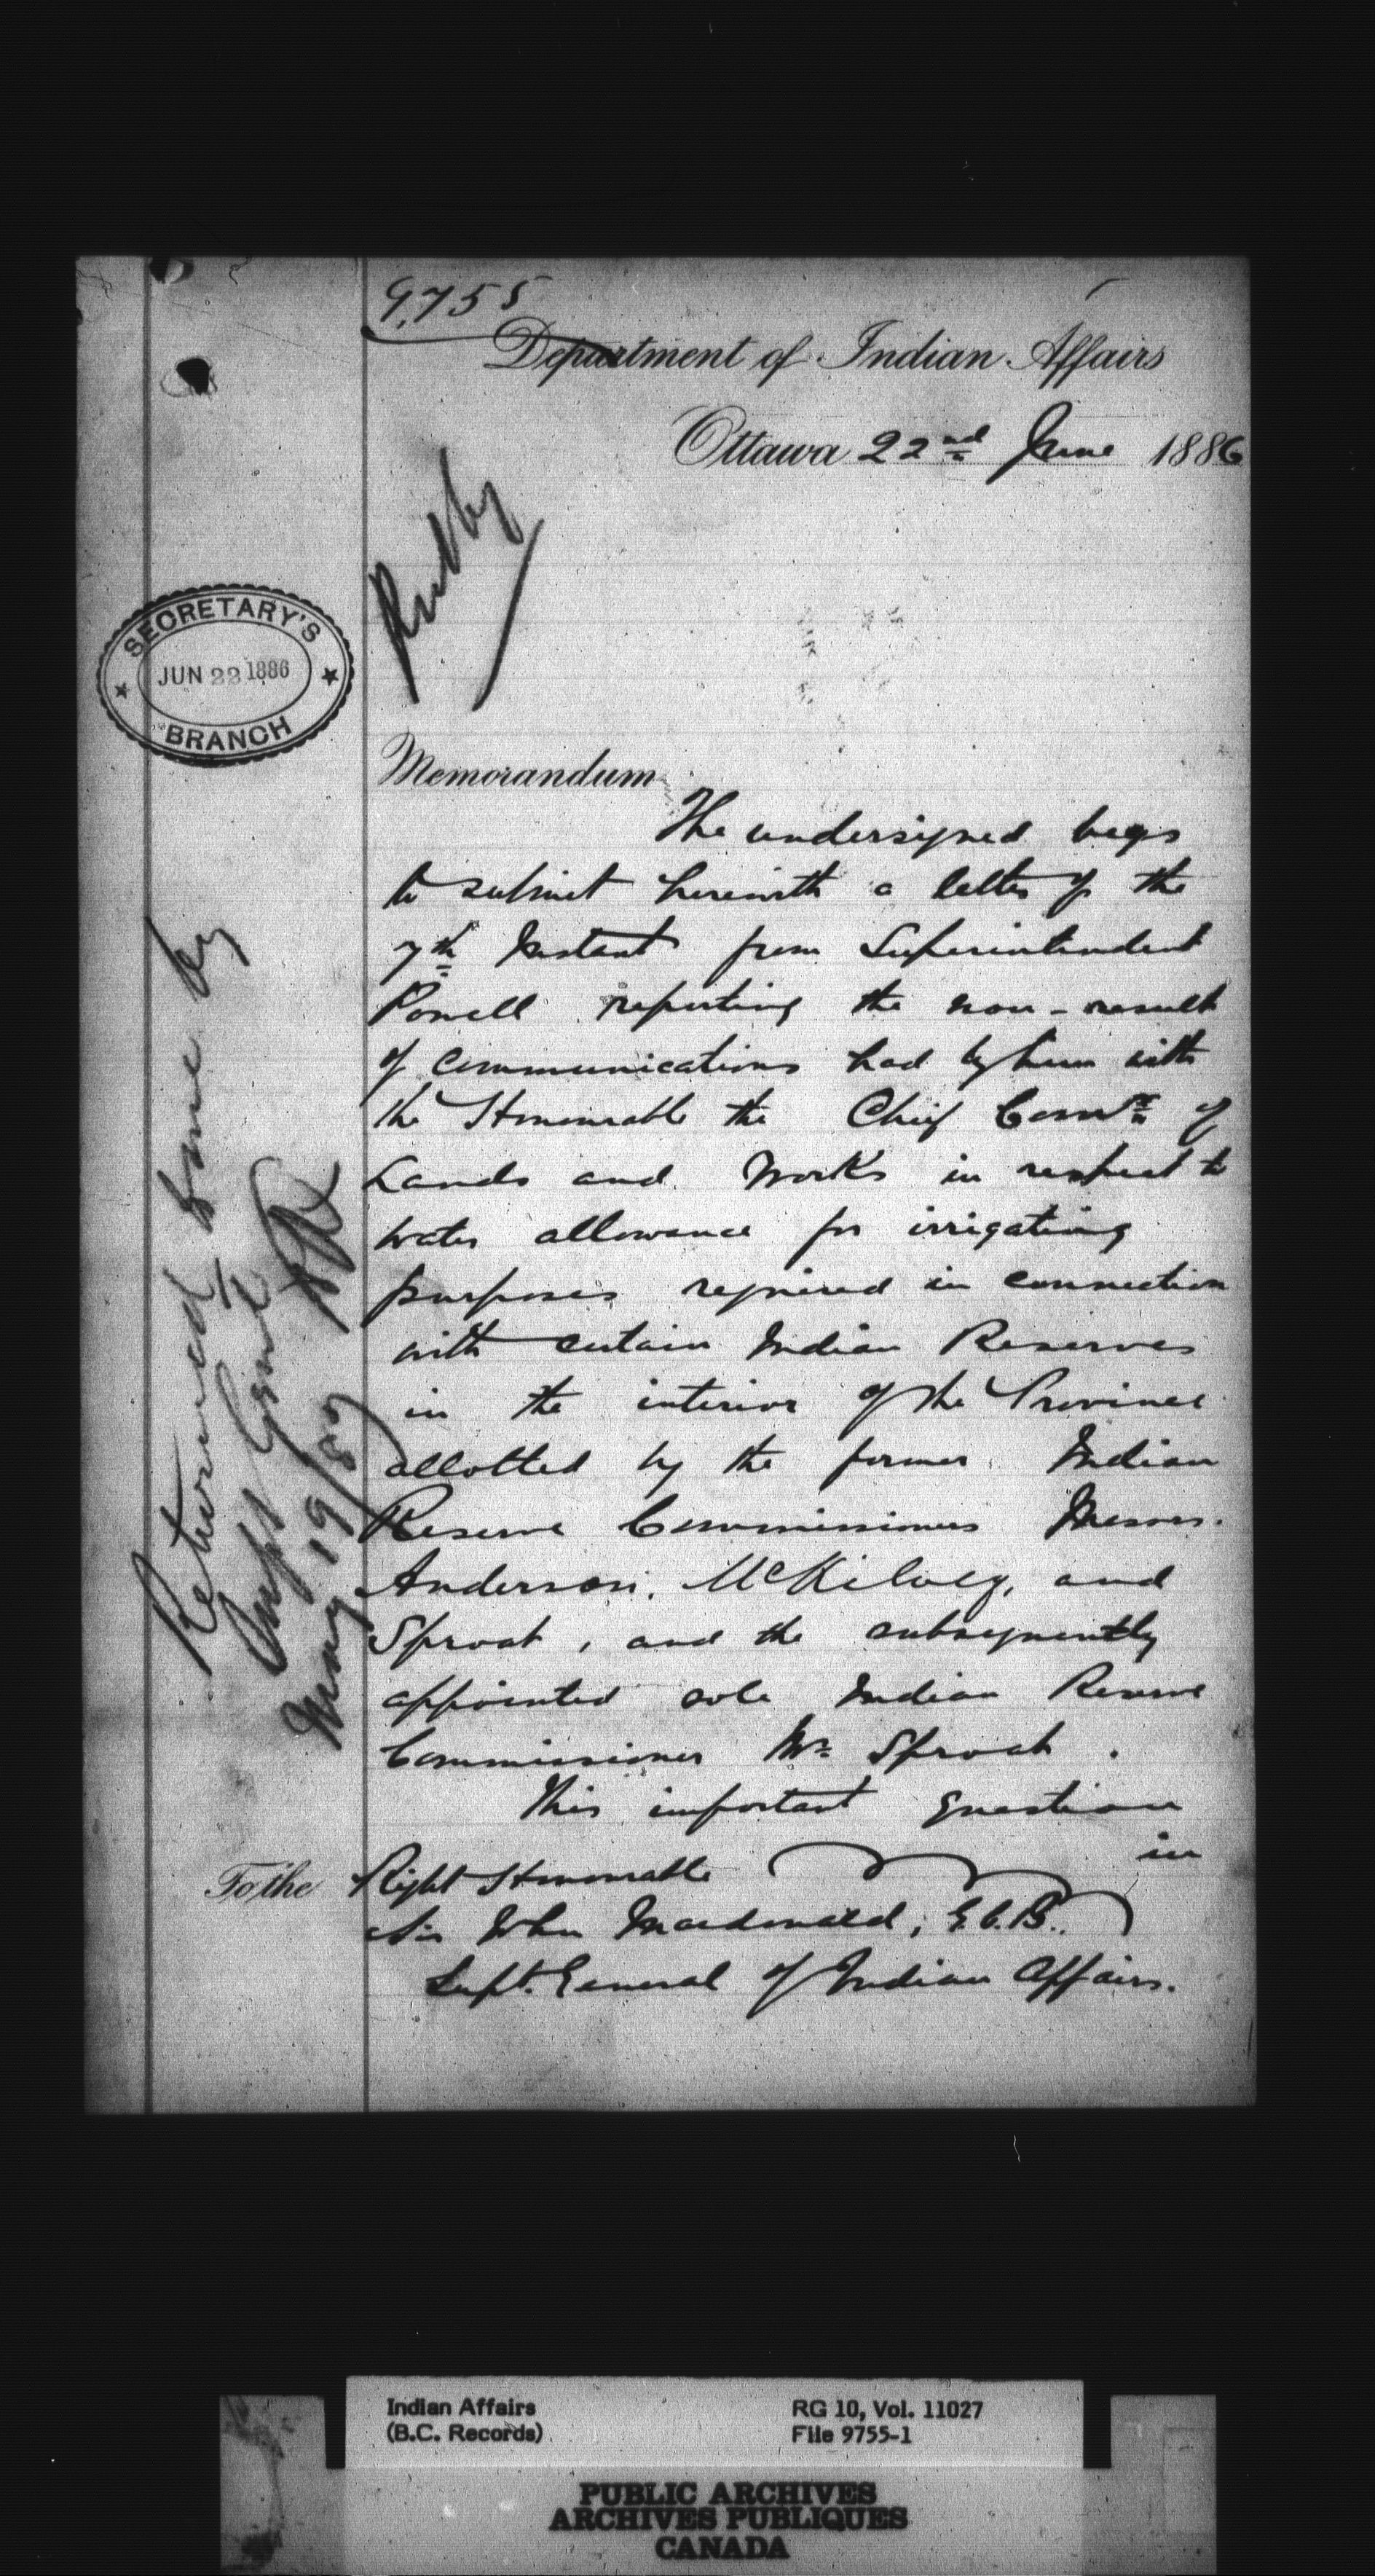 9,755
Department of Indian Affairs
Ottawa 22nd June 1886
SECRETARY'S
JUN 22 1886
BRANCH
Memorandum
The undersigned begs
to submit herewith a letter of the
7th Instant from Superintendent
Powell reporting the non-result
of communications had by him with
the Honourable the Chief Commr of
Lands and Works in respect to
water allowance for irrigating
purposes required in connection
with certain Indian Reserves
in the interior of the Province
allotted by the former Indian
Reserve Commissioners Messrs.
Anderson, McKilvey, and
Sproat, and the subsequently
appointed sole Indian Reserve
Commissioner Mr Sproat.
This important question
in
To the Right Honourable
Sir John Macdonald, G.C.B.
Supt. General of Indian Affairs.
Returned some by
Supt Genl
May 19/87
Indian Affairs
(B.C. Records)
RG 10, Vol. 11027
File 9755-1
PUBLIC ARCHIVES
ARCHIVES PUBLIQUES
CANADA